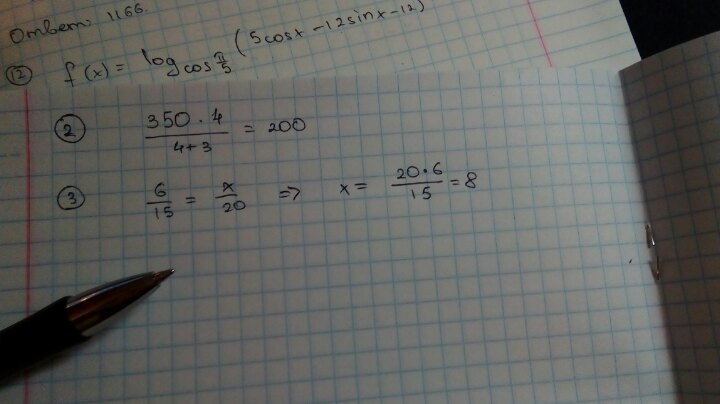 Ответ: 1166
⑫ f(x) = log cos π/5 (5cosx - 12sinx - 12)
② 350 · 4 / 4+3 = 200
③ 6/15 = x/20 => x = 20·6/15 = 8